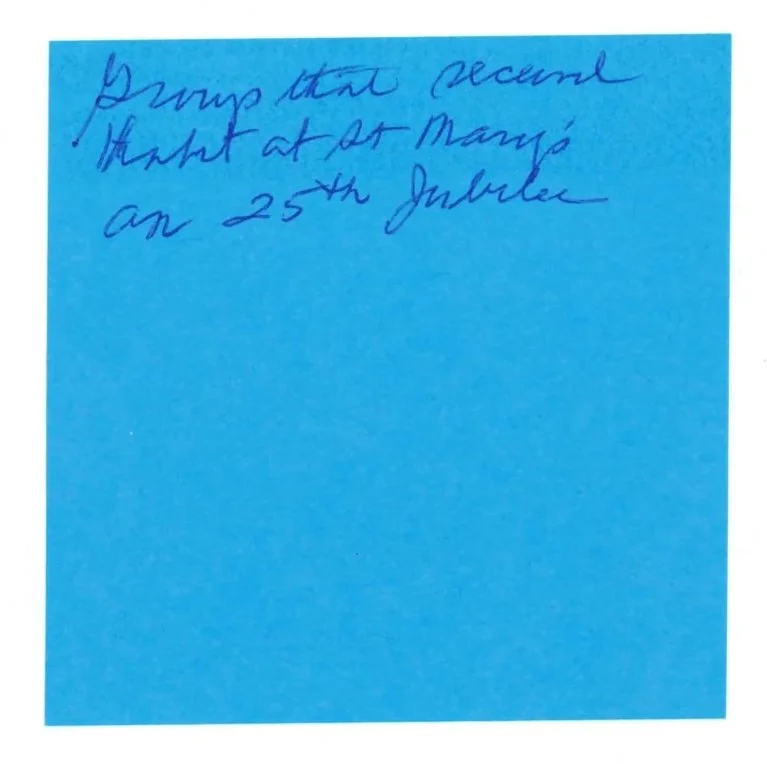 Group that received
Habit at St Mary's
on 25th Jubilee